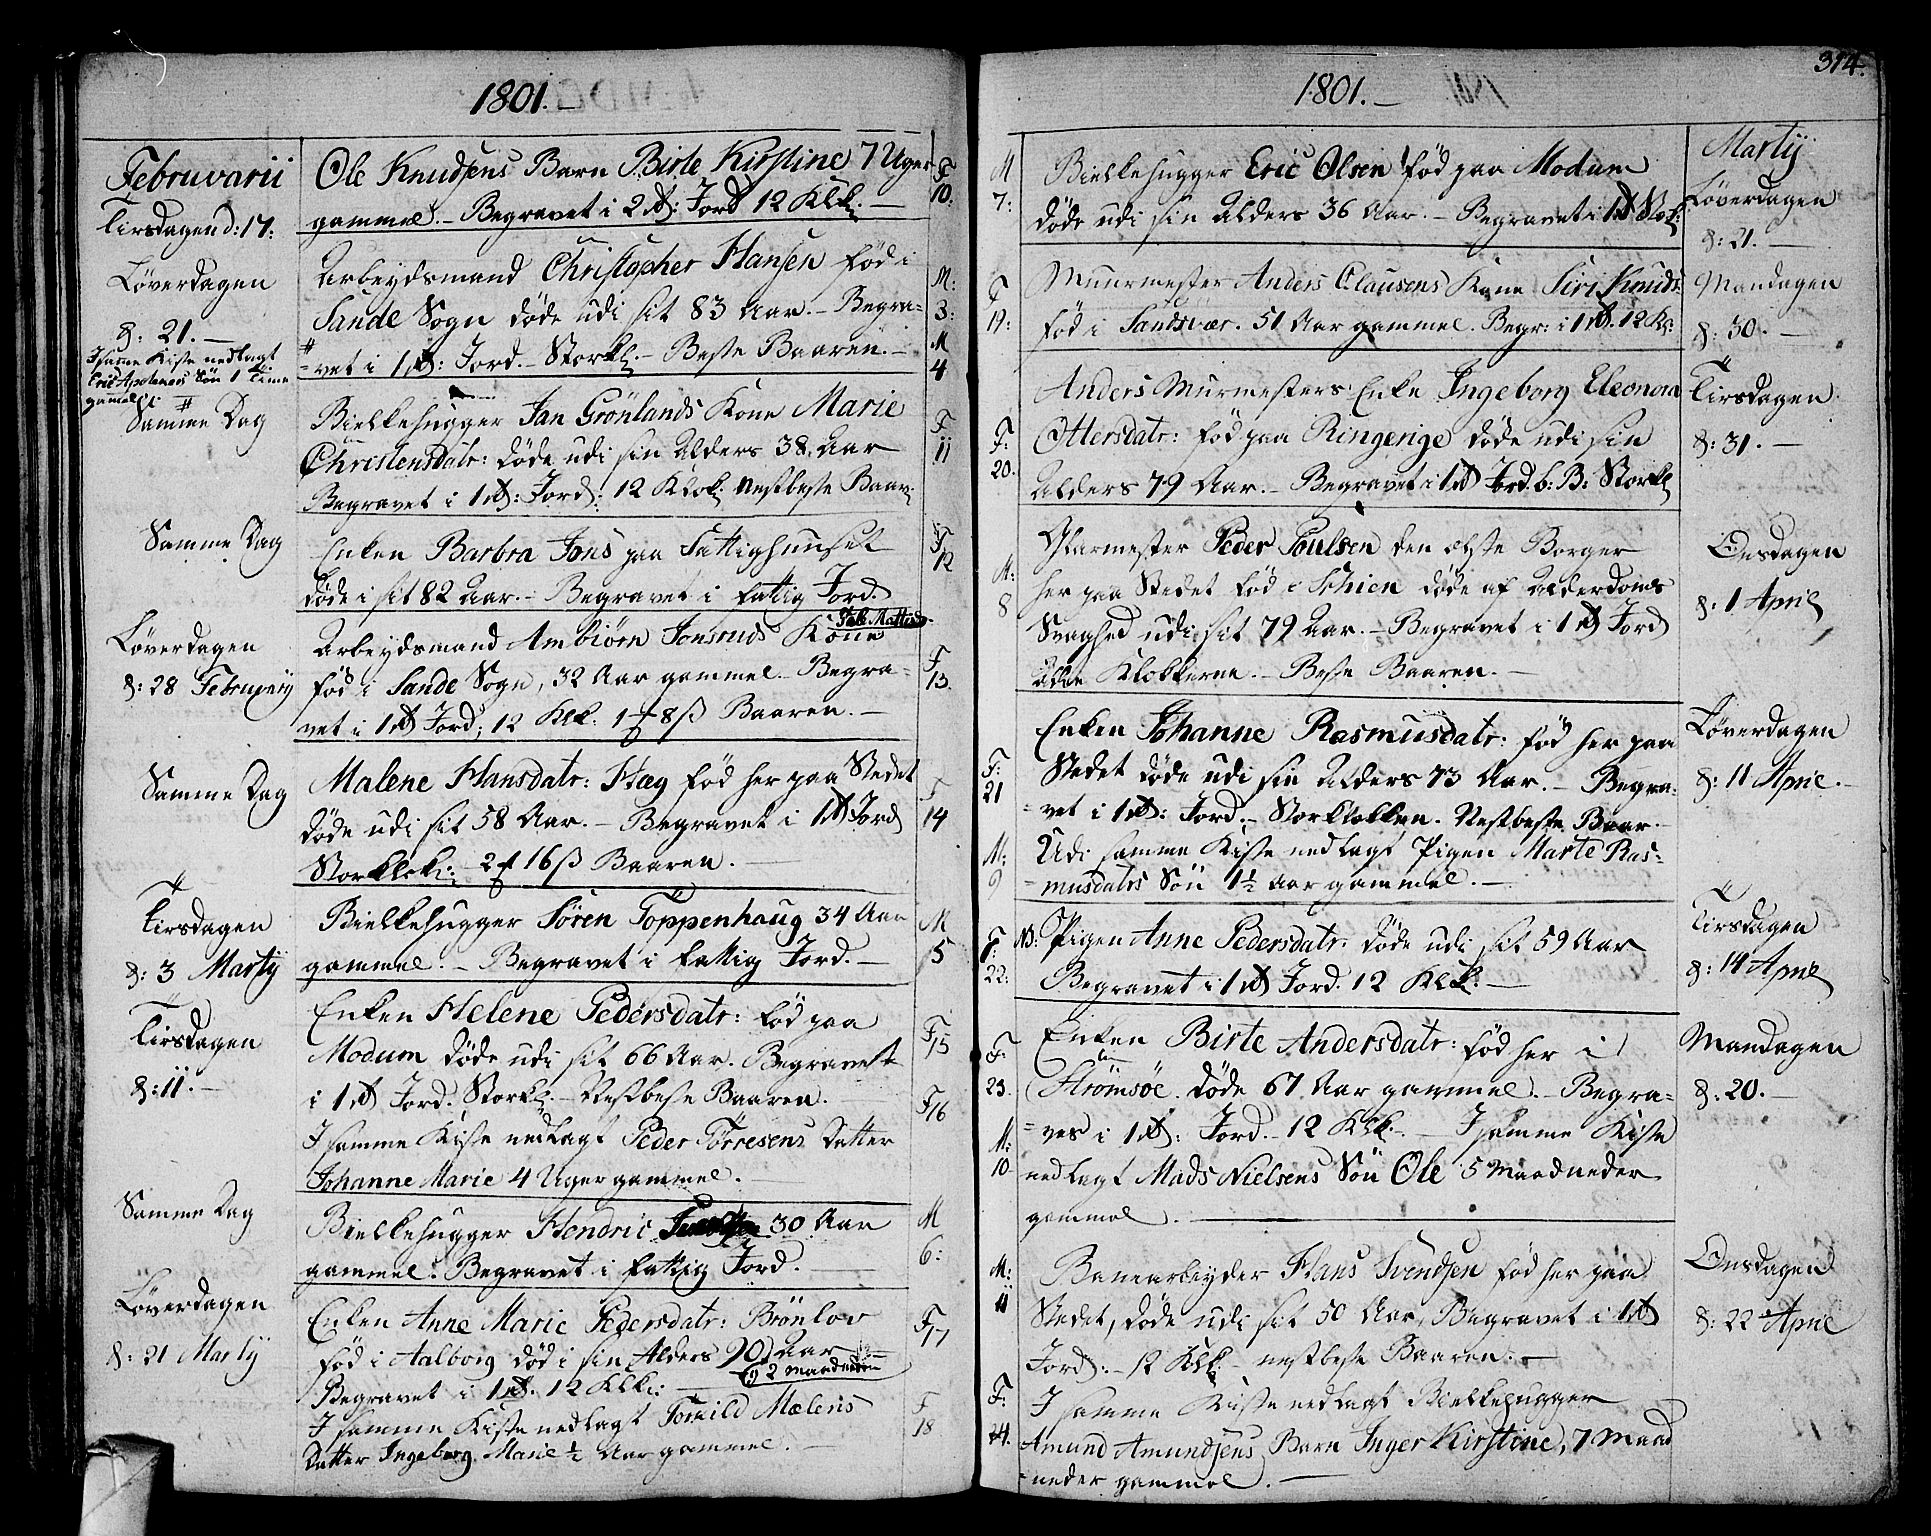 1801.
Februarii
Tirsdagen d: 17:
Ole Knudsens Barn Birte Kirstine 7 Uger
gammel. - Begravet i 2 rd: Jord 12 Klk: -
F
10:
Löverdagen
d: 21. -
Arbeydsmand Christopher Hansen föd i
Sande Sogn döde udi sit 83 Aar. - Begra=
=vet i 1 rd: Jord. - Storkl. - Beste Baaren. -
M:
3:
I samme Kiste nedlagt
Eric Apolonies Sön 1 Time
gammel. #
M
4
Samme Dag
Bielkehugger Jan Grönlands Kone Marie
Christensdatr: döde udi sin Alders 38. Aar
Begravet i 1 rd: Jord: 12 Klok: Nestbeste Baar:
F
11
Samme Dag
Enken Barbra Jons paa Fattighuuset
döde i sit 82 Aar. - Begravet i fattig Jord.
F
12
Löverdagen
d: 28 Februarij
Arbeydsmand Ambiörn Jonsruds Kone
föd i Sande Sogn, 32 Aar gammel. Begra=
vet i 1 rd Jord; 12 Klk: 1 8 ß Baaren. -
F
13.
Samme Dag
Malene Hansdatr: Hæg föd her paa Stedet
döde udi sit 58 Aar. - Begravet i 1 rd Jord
Storklok: 2 16 ß Baaren. -
F
14
Tirsdagen
d: 3 Martij
Bielkehugger Sören Toppenhaug 34 Aar
gammel. - Begravet i fattig Jord. -
M
5
Tirsdagen
d: 11. -
Enken Helene Pedersdatr: föd paa
Modum döde udi sit 66 Aar. Begravet
i 1 rd Jord. Storkl. - Nestbeste Baaren. -
F
15
I samme Kiste nedlagt Peder Törresens Datter
Johanne Marie 4 Uger gammel. -
F
16
Samme Dag
Bielkehugger Hendric 30 Aar
gammel. Begravet i fattig Jord. -
M
6:
Löverdagen
d: 21 Martij
Enken Anne Marie Pedersdatr: Brönlov
föd i Aalborg död i sin Alders 90 Aar
og 2 Maaneder
Begravet i 1 rd. 12 Klk: -
F
17
I samme Kiste nedlagt Tomild Mælens
Datter Ingeborg Marie 1/2 Aar gammel. -
F
18
1801. -
314.
M
7:
Bielkehugger Eric Olsen föd paa Modum
döde udi sin Alders 36 Aar. - Begravet i 1 rd Stok:
Martij
Löverdagen
d: 21. -
F
19:
Muurmester Anders Clausens Kone Siri Knuds:
föd i Sandsvær. 51 Aar gammel. Begr: i 1 rd. 12 Kl:
Mandagen
d: 30. -
F:
20.
Anders Murmesters Enke Ingeborg Eleonora
Ottersdatr: föd paa Ringerige döde udi sin
Alders 79 Aar. - Begravet i 1 rd Jord. b: B: Storkl
Tirsdagen
d: 31. -
M:
8
Glarmester Peder Poulsen den ælste Borger
her paa Stedet föd i Schien döde af Alderdoms
Svaghed udi sit 79 Aar. - Begravet i 1 rd Jord
Alle Klokkerne. - Beste Baaren. -
Onsdagen
d: 1 April
F:
21
Enken Johanne Rasmusdatr: föd her paa
Stedet döde udi sin Alders 73 Aar. - Begra=
=vet i 1 rd: Jord. - Storklokken. Nestbeste Baar.
Löverdagen
d: 11 April. -
M:
9
Udi samme Kiste nedlagt Pigen Marte Ras=
=musdatrs Sön 1 1/2 Aar gammel. -
F:
22:
NB: Pigen Anne Pedersdatr: döde udi sit 59 Aar
Begravet i 1 rd Jord. 12 Klk: -
Tirsdagen
d: 14 April
F:
23.
Enken Birte Andersdatr: föd her i
Strömsöe döde 67 Aar gammel. - Begra=
=ves i 1 rd: Jord. - 12 Klk: - I samme Kiste
Mandagen
d: 20. -
M:
10
nedlagt Mads Nielsens Sön Ole 5 Maaneder
gammel. -
M:
11
Banearbeyder Hans Svendsen föd her paa
Stedet, döde udi sit 50 Aar, Begravet i 1 rd
Jord: - 12 Klk: - nestbeste Baaren. -
Onsdagen
d: 22 April
F:
24.
I samme Kiste nedlagt Bielkehugger
Amund Amundsens Barn Inger Kirstine, 7 Maa=
=neder gammel. -